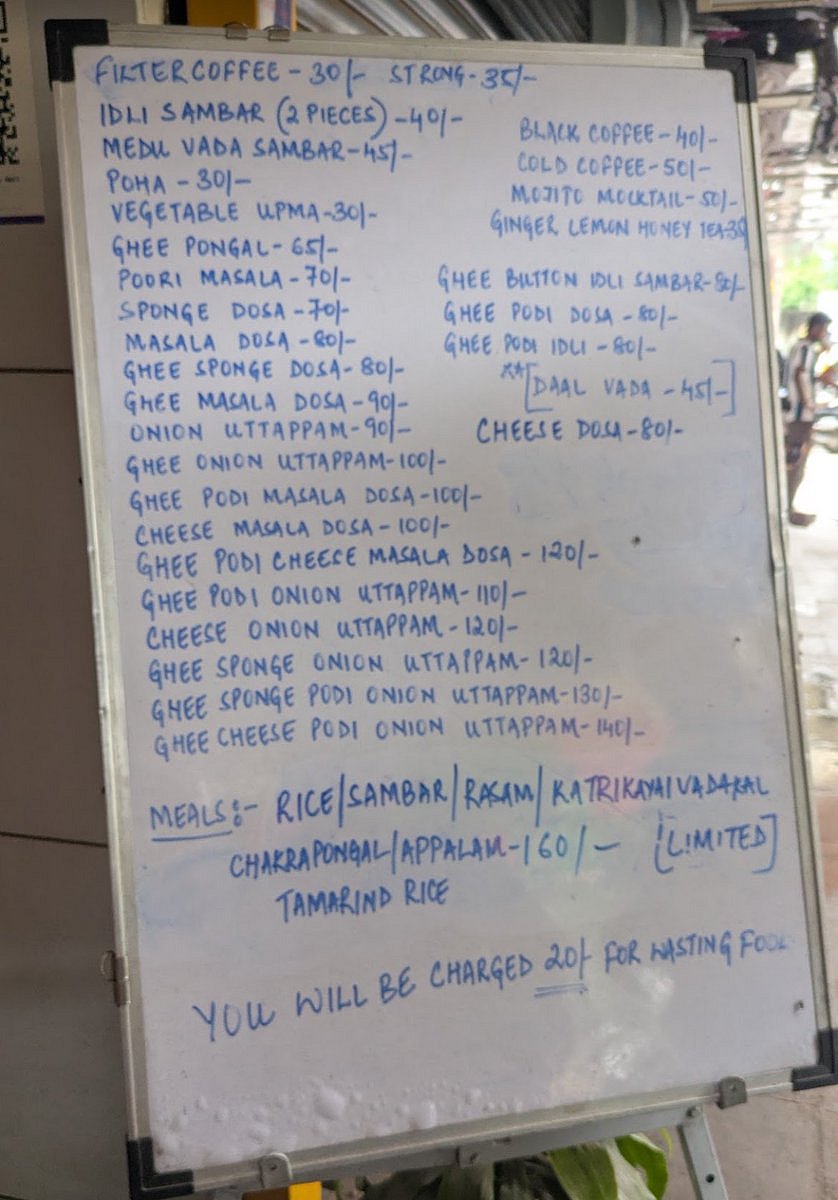 FILTER COFFEE - 30/- STRONG - 35/-
IDLI SAMBAR (2 PIECES) - 40/-
MEDU VADA SAMBAR - 45/-
POHA - 30/-
VEGETABLE UPMA - 30/-
GHEE PONGAL - 65/-
POORI MASALA - 70/-
SPONGE DOSA - 70/-
MASALA DOSA - 80/-
GHEE SPONGE DOSA - 80/-
GHEE MASALA DOSA - 90/-
ONION UTTAPPAM - 90/-
GHEE ONION UTTAPPAM - 100/-
GHEE PODI MASALA DOSA - 100/-
CHEESE MASALA DOSA - 100/-
GHEE PODI CHEESE MASALA DOSA - 120/-
GHEE PODI ONION UTTAPPAM - 110/-
CHEESE ONION UTTAPPAM - 120/-
GHEE SPONGE ONION UTTAPPAM - 120/-
GHEE SPONGE PODI ONION UTTAPPAM - 130/-
GHEE CHEESE PODI ONION UTTAPPAM - 140/-
BLACK COFFEE - 40/-
COLD COFFEE - 50/-
MOJITO MOCKTAIL - 50/-
GINGER LEMON HONEY TEA
GHEE BUTTON IDLI SAMBAR - 80/-
GHEE PODI DOSA - 80/-
GHEE PODI IDLI - 80/-
** [DAAL VADA - 45/-]
CHEESE DOSA - 80/-
MEALS:- RICE/SAMBAR/RASAM/KATRIKAYAI VADAKAL
CHAKRAPONGAL/APPALAM - 160/- [LIMITED]
TAMARIND RICE
YOU WILL BE CHARGED 20/- FOR WASTING FOOD